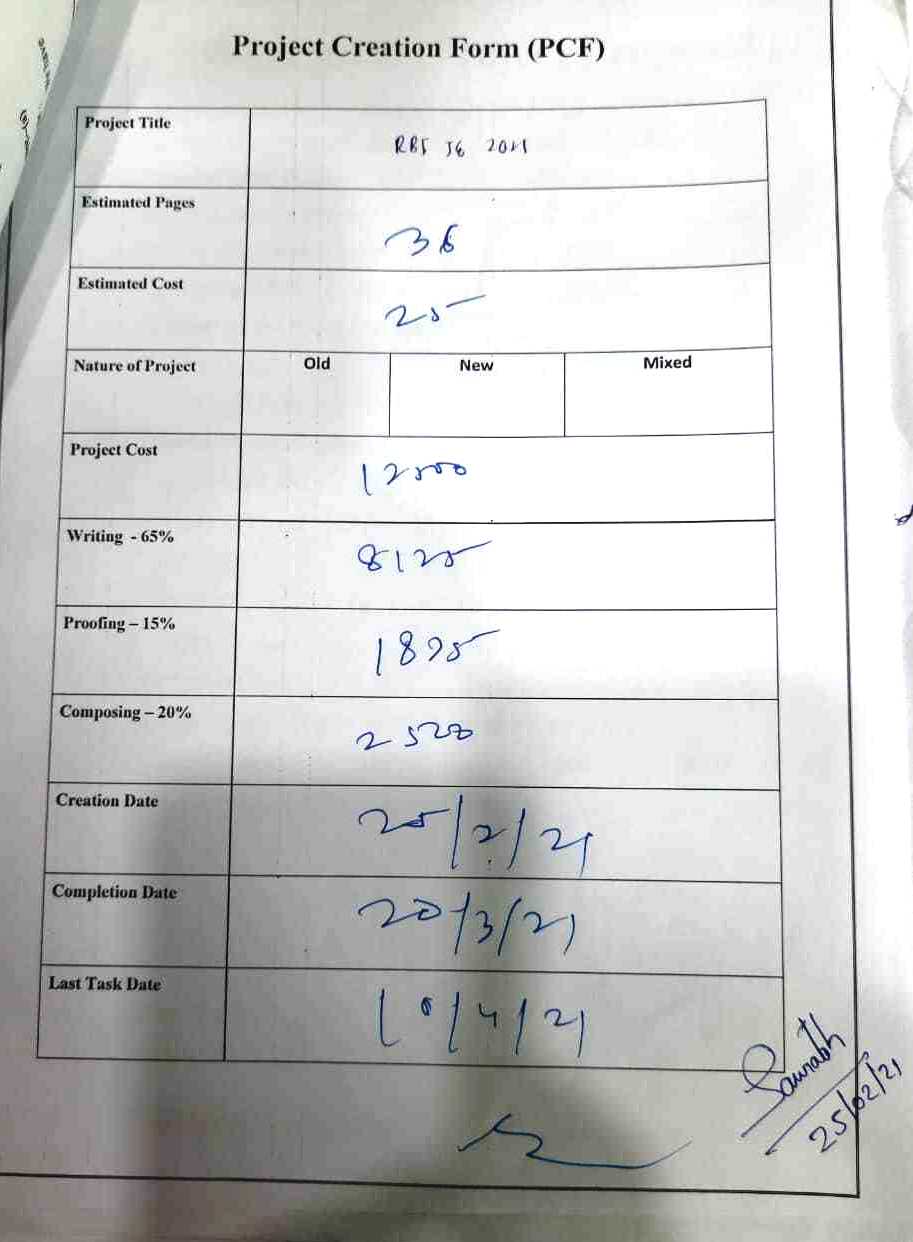 Project Creation Form (PCF)
Project Title
2021
Estimated Pages
36
Estimated Cost
25
Nature of Project Old New Mixed
Project Cost
12500
Writing - 65%
8125
Proofing – 15%
1875
Composing – 20%
2500
Creation Date
25/2/21
Completion Date
20/3/21
Last Task Date
10/4/21
Saurabh
25/02/21